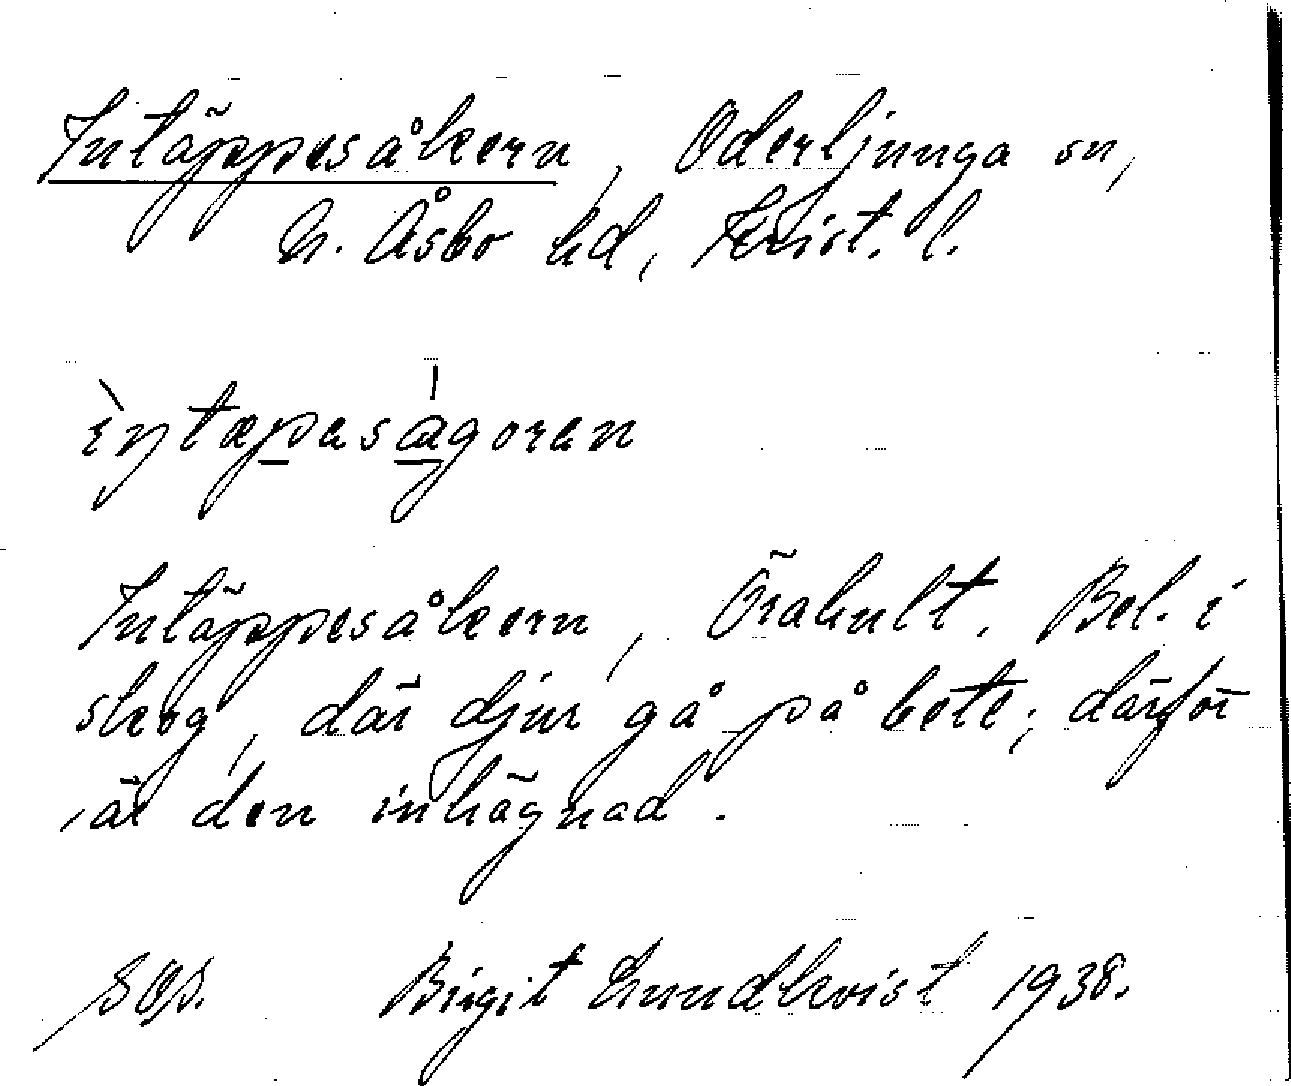 Intäppesåkern, Oderljunga sn,
N. Åsbo hd, Krist. l.
ìntæpesågoren
Intäppesåkern, Örahult. Bel. i
skog, där djur gå på bete; därför
är den inhägnad.
SOS. Birgit Lundkvist 1938.